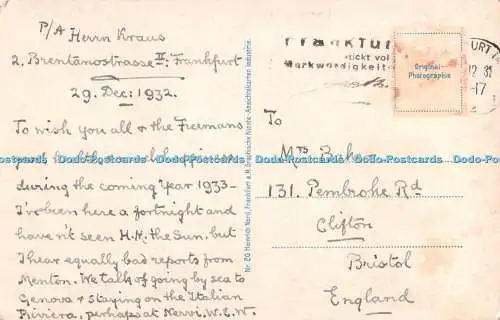 P/A Herrn Kraus
2. Brentanostrasse II; Frankfurt
29. Dec: 1932.
To wish you all & the Freemans
good health and happiness
during the coming Year 1933 –
I've been here a fortnight and
haven't seen H.M. the Sun, but
I hear equally bad reports from
Menton. We talk of going by sea to
Genova & staying on the Italian
Riviera, perhaps at Nervi. W.E.W.
Nr. 20 Heinrich Nord, Frankfurt a.M. Graphische Kunst- Ansichtskarten Industrie
Frankfur
steckt vol
Merkwürdigkeite
Original-
Photographie
FURT
-17
To
Mrs Baker
131. Pembroke Rd
Clifton
Bristol
England
Dodo-Postcards Dodo-Postcards Dodo-Postcards Dodo-Postcards Dodo-Postcards